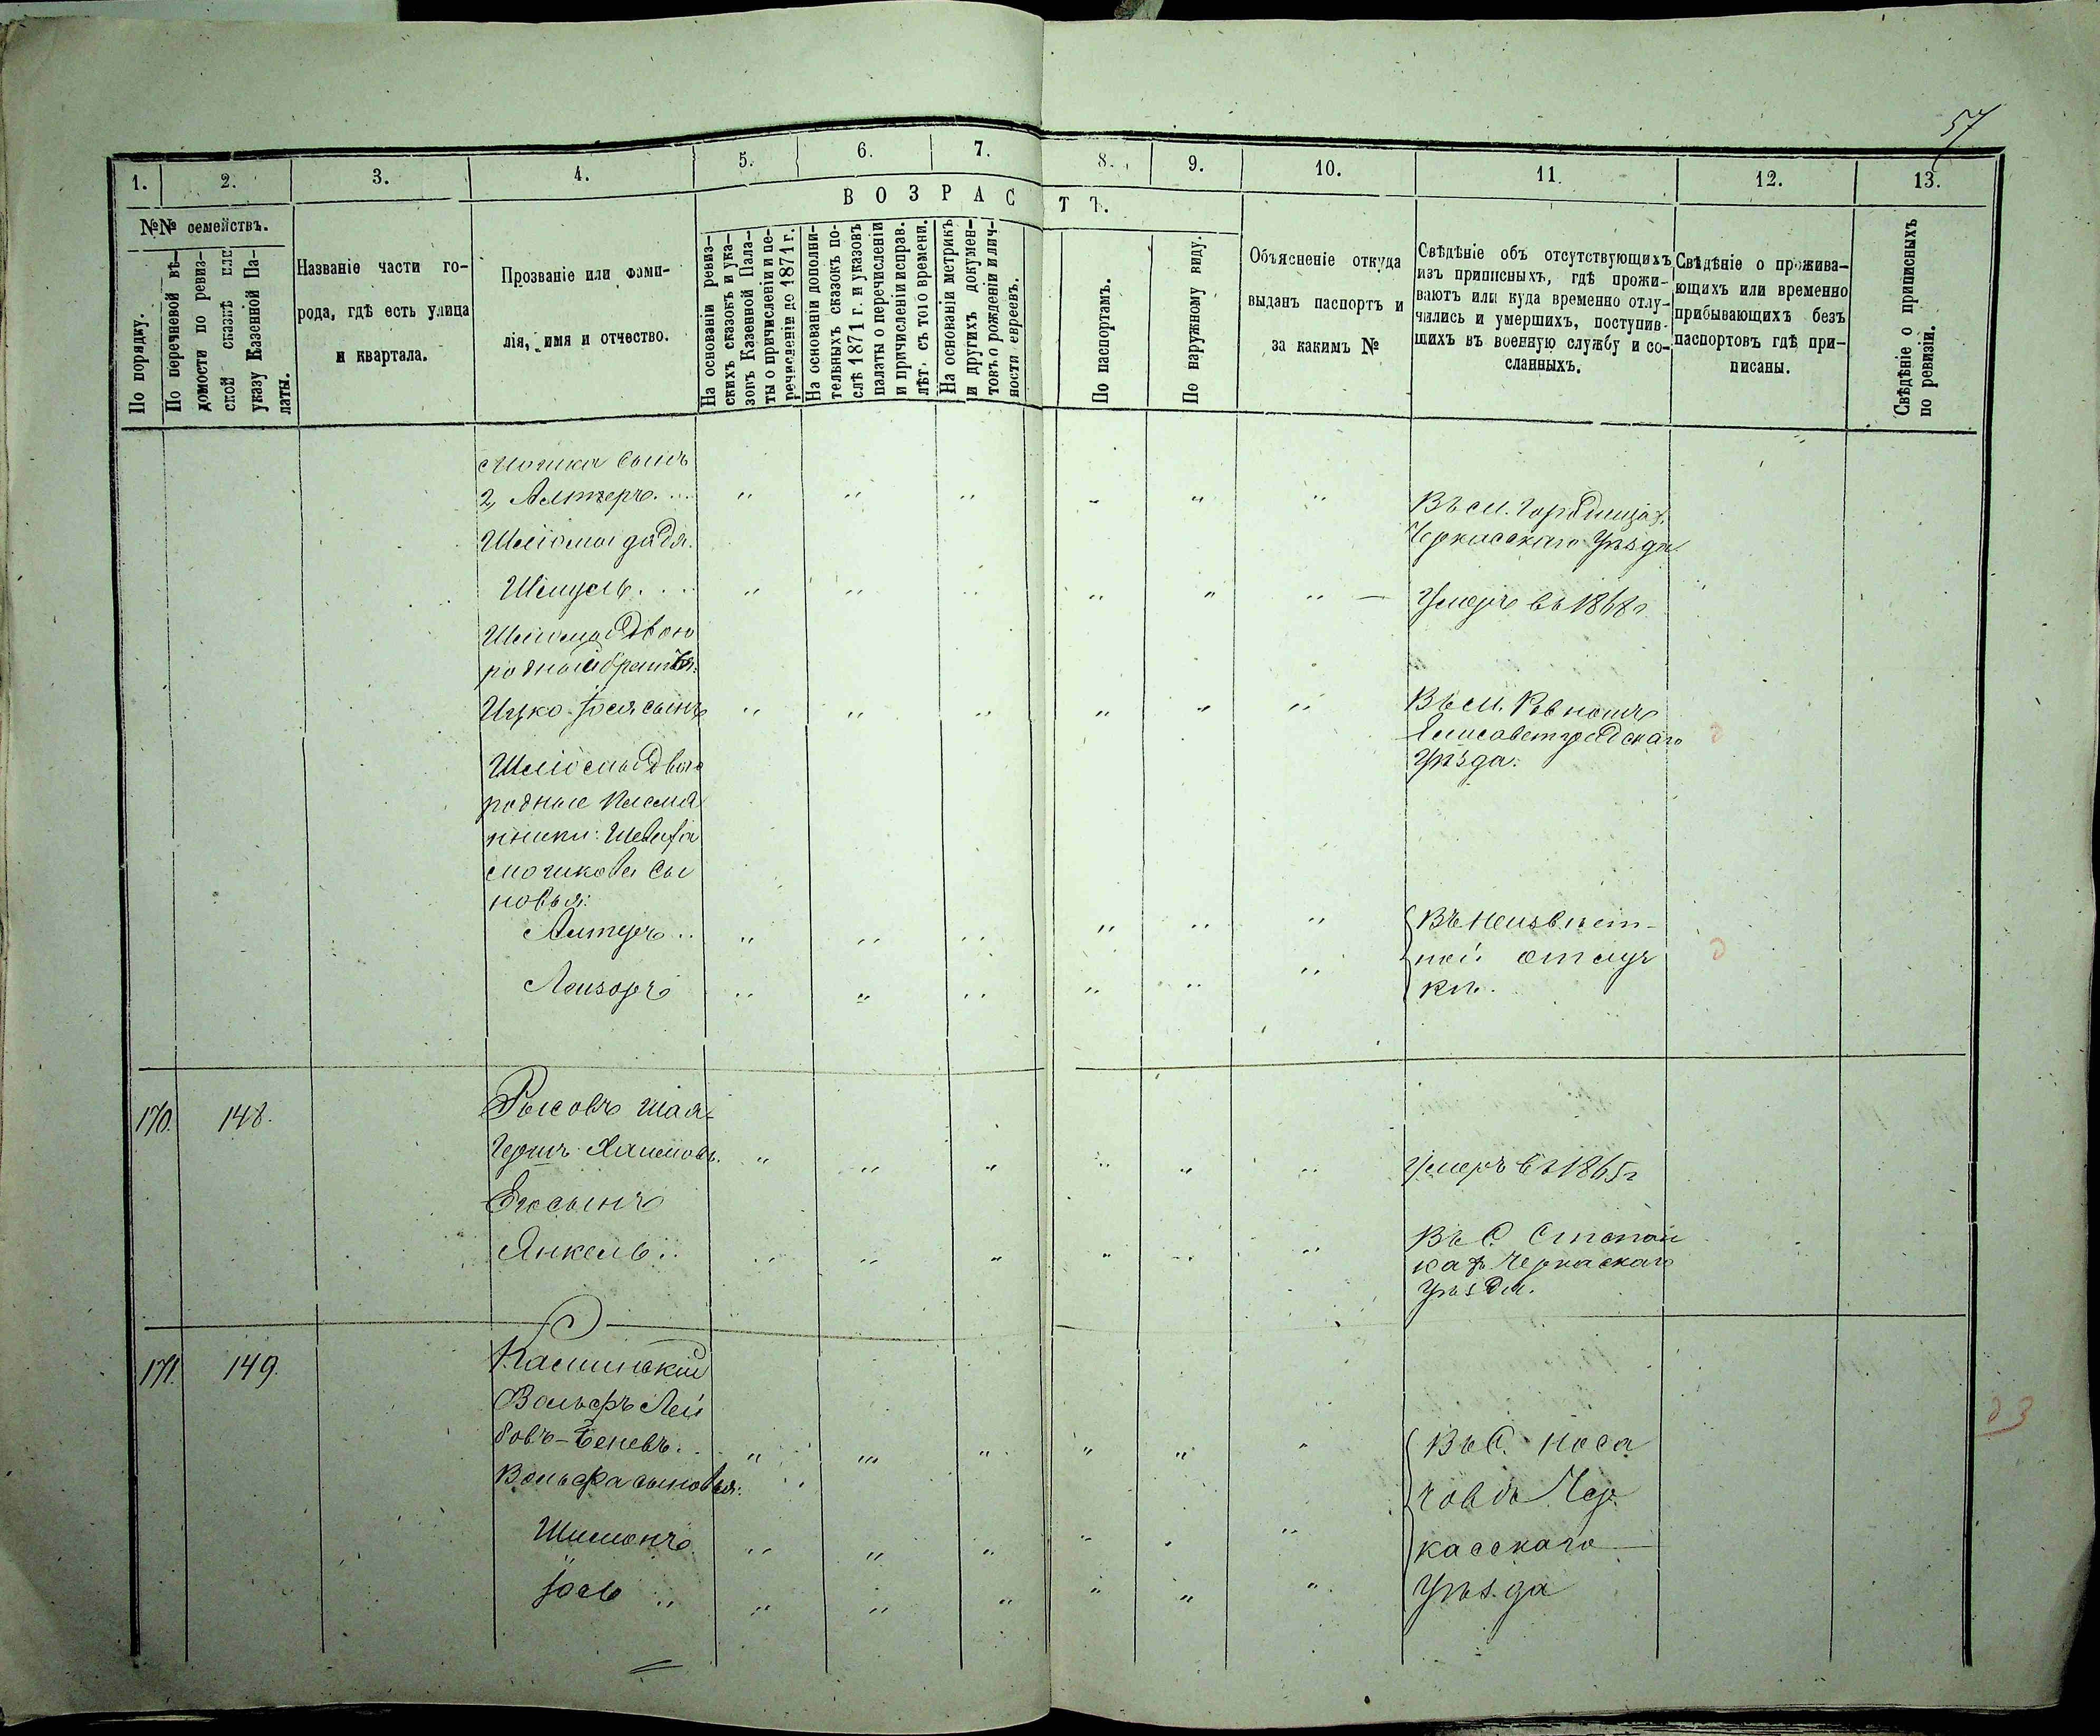 57
1. 2. 3. 4. 5. 6. 7. 8. 9. 10. 11. 12. 13.
В О З Р А С Т Ъ.
№№ семействъ.
По порядку.
По перечневой вѣ-
домости по ревиз-
ской сказкѣ или
указу Казенной Па-
латы.
Названіе части го-
рода, гдѣ есть улица
и квартала.
Прозваніе или фами-
лія, имя и отчество.
На основаніи ревиз-
скихъ сказокъ и ука-
зовъ Казенной Пала-
ты о причисленіи и пе-
речисленіи до 1871 г.
На основаніи дополни-
тельныхъ сказокъ по-
слѣ 1871 г. и указовъ
палаты о перечисленіи
и причисленіи исправ.
лѣт. съ того времени.
На основаніи метрикъ
и другихъ докумен-
товъ о рожденіи и лич-
ности евреевъ.
По паспортамъ.
По наружному виду.
Объясненіе откуда
выданъ паспортъ и
за какимъ №
Свѣдѣніе объ отсутствующихъ
изъ приписныхъ, гдѣ прожи-
ваютъ или куда временно отлу-
чились и умершихъ, поступив-
шихъ въ военную службу и со-
сланныхъ.
Свѣдѣніе о прожива-
ющихъ или временно
прибывающихъ безъ
паспортовъ гдѣ при-
писаны.
Свѣдѣніе о приписныхъ
по ревизіи.
Мошка сынъ
2, Алтеръ. ... " " " " " " Въ м. Городищахъ
Черкасскаго Уѣзда
Шліомы дядя.
Шмуль. ... " " " " " " — Умеръ въ 1868 г.
Шліомы двою
родный братья:
Ицко Іося сынъ " " " " " " Въ м. Ровномъ
Елисаветградскаго
Уѣзда.
Шліомы двою
родные племя
нники:
Мошкова сы
новья:
Алтеръ .. " " " " " " Въ неизвѣст-
Лейзоръ " " " " " " ной отлуч
кѣ.
170. 148. Рысовъ Шая-
Гершъ Хаимовъ. " " " " " " Умеръ въ 1865 г
Его сынъ
Янкель .. " " " " " " Въ С.
Черкаскаго
Уѣзда.
171. 149.
Вольфъ Лей
бовъ-Беневъ. .. " " " " " " Въ С. Носа
Вольфа сыновья:
човѣ Чер
Шимонъ " " " " " " касскаго
Іось " " " " " " Уѣзда